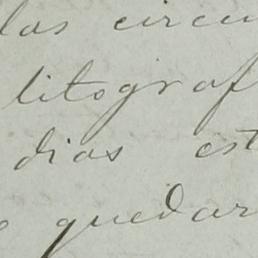 las circu
litograf
dias est
quedar